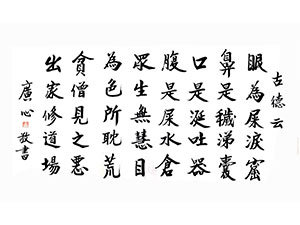 古德云
眼為屎淚窟
鼻是穢涕囊
口是涎吐器
腹是屎水倉
眾生無慧目
為色所耽荒
貪僧見之惡
出家修道場
廣心敬書